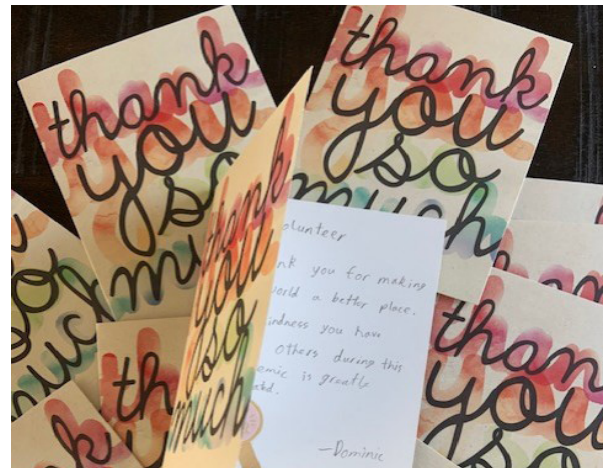 thank
you
so
much
thank
you
so
much
so
much
thank
you
so
much
olunteer
nk you for making
orld a better place.
indness you have
others during this
emic is greatly
—Dominic
th
than
you
so